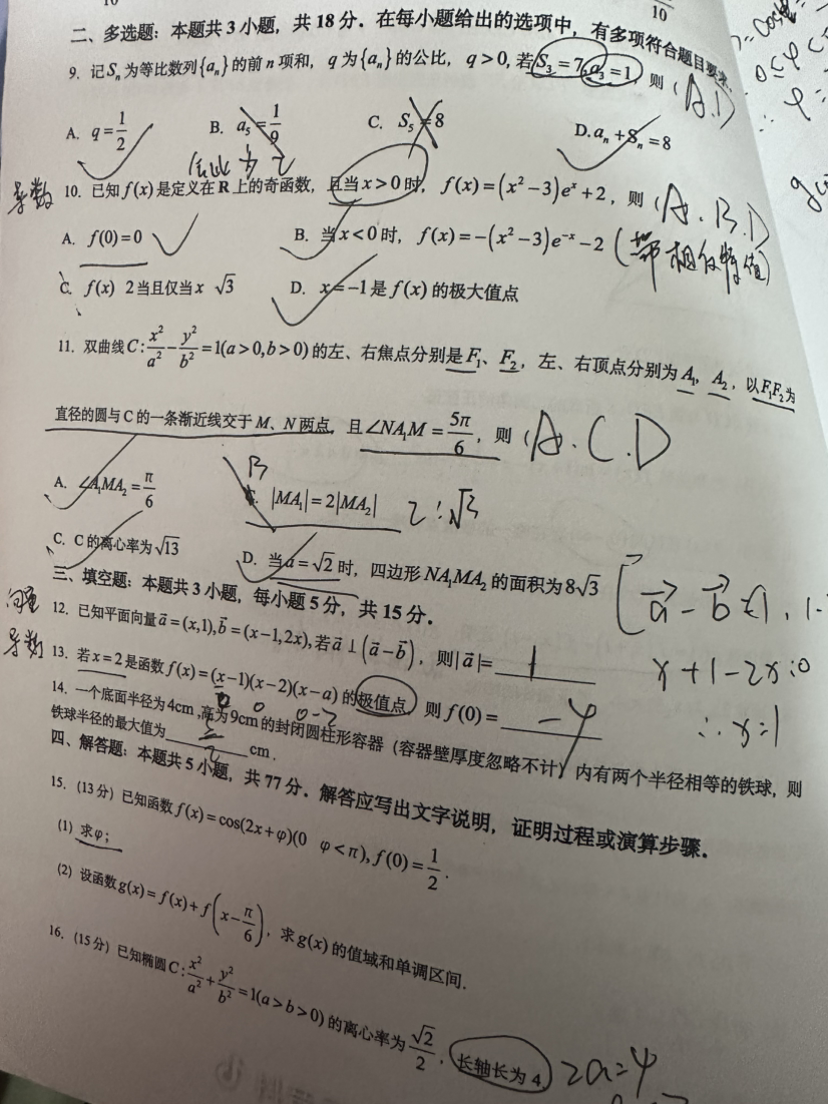 10
10
二、多选题：本题共3小题，共18分．在每小题给出的选项中，有多项符合题目要求．
9. 记Sₙ为等比数列{aₙ}的前n项和，q为{aₙ}的公比，q>0,若S₃=7,a₃=1，则（A.D）
A. q=1/2 B. a₅=1/9 C. S₅=8 D. aₙ+Sₙ=8
导数 10. 已知f(x)是定义在R上的奇函数，且当x>0时，f(x)=(x²−3)eˣ+2，则（A.B.D）
A. f(0)=0 B. 当x<0时，f(x)=−(x²−3)e⁻ˣ−2（带相似特值）
C. f(x) 2当且仅当x √3 D. x=−1是f(x)的极大值点
11. 双曲线C:x²/a²−y²/b²=1(a>0,b>0)的左、右焦点分别是F₁、F₂，左、右顶点分别为A₁，A₂，以F₁F₂为
直径的圆与C的一条渐近线交于M、N两点，且∠NA₁M=5π/6，则（A.C.D
A. ∠A₁MA₂=π/6 B |MA₁|=2|MA₂| 2:√3
C. C的离心率为√13 D. 当a=√2时，四边形NA₁MA₂的面积为8√3
三、填空题：本题共3小题，每小题5分，共15分．
向量 12. 已知平面向量a⃗=(x,1),b⃗=(x−1,2x),若a⃗⊥(a⃗−b⃗)，则|a⃗|=1
a⃗−b⃗=(1, 1-
x+1-2x=0
∴x=1
导数 13. 若x=2是函数f(x)=(x−1)(x−2)(x−a)的极值点，则f(0)=-4
0 0 0-2
14. 一个底面半径为4cm,高为9cm的封闭圆柱形容器（容器壁厚度忽略不计）内有两个半径相等的铁球，则
铁球半径的最大值为5/2cm．
四、解答题：本题共5小题，共77分．解答应写出文字说明，证明过程或演算步骤．
15. (13分）已知函数f(x)=cos(2x+φ)(0 φ<π),f(0)=1/2．
(1) 求φ;
(2) 设函数g(x)=f(x)+f(x−π/6)，求g(x)的值域和单调区间．
16. (15分）已知椭圆C:x²/a²+y²/b²=1(a>b>0)的离心率为√2/2，长轴长为4. 2a=4